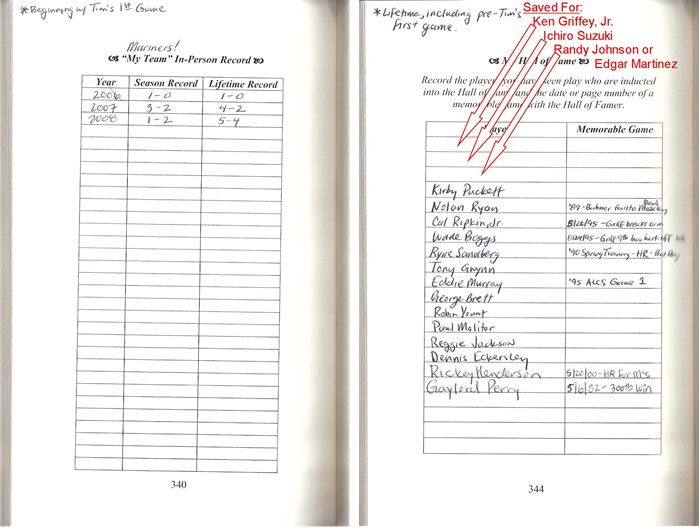 *Beginning w/ Tim's 1st Game
Mariners!
"My Team" In-Person Record
Year Season Record Lifetime Record
2006 1-0 1-0
2007 3-2 4-2
2008 1-2 5-4
340
*Lifetime, including pre-Tim's
first game.
Saved For:
Ken Griffey, Jr.
Ichiro Suzuki
Randy Johnson or
Edgar Martinez
Hall of Fame
Record the player you have seen play who are inducted
into the Hall of Fame and the date or page number of a
memorable game with the Hall of Famer.
Player Memorable Game
Kirby Puckett
Nolan Ryan '89-Buhner
Cal Ripkin, Jr
Wade Boggs
Ryne Sandberg '90 Spring Training-HR-
Tony Gwynn
Eddie Murray '95 ALCS Game 1
George Brett
Robin Yount
Paul Molitor
Reggie Jackson
Dennis Eckersley
Rickey Henderson 5/20/00-HR for M's
Gaylord Perry 5/6/82-300th Win
344